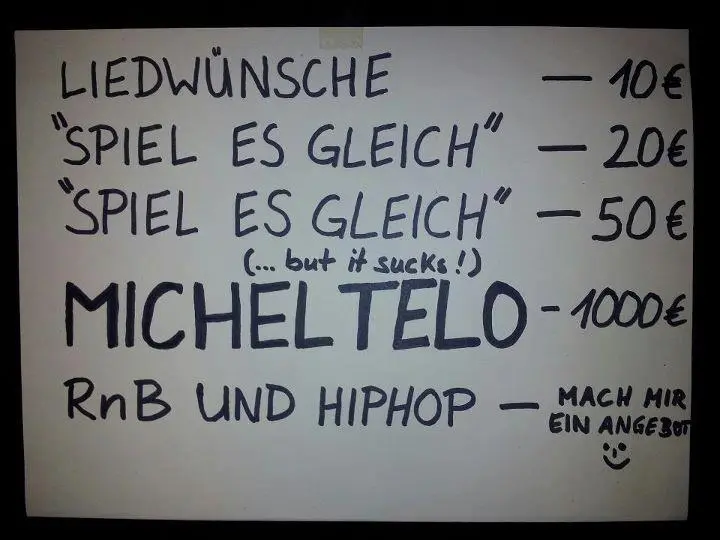 LIEDWÜNSCHE — 10€
"SPIEL ES GLEICH" — 20€
"SPIEL ES GLEICH" — 50€
(... but it sucks!)
MICHEL TELO - 1000€
RnB UND HIPHOP — MACH MIR
EIN ANGEBOT